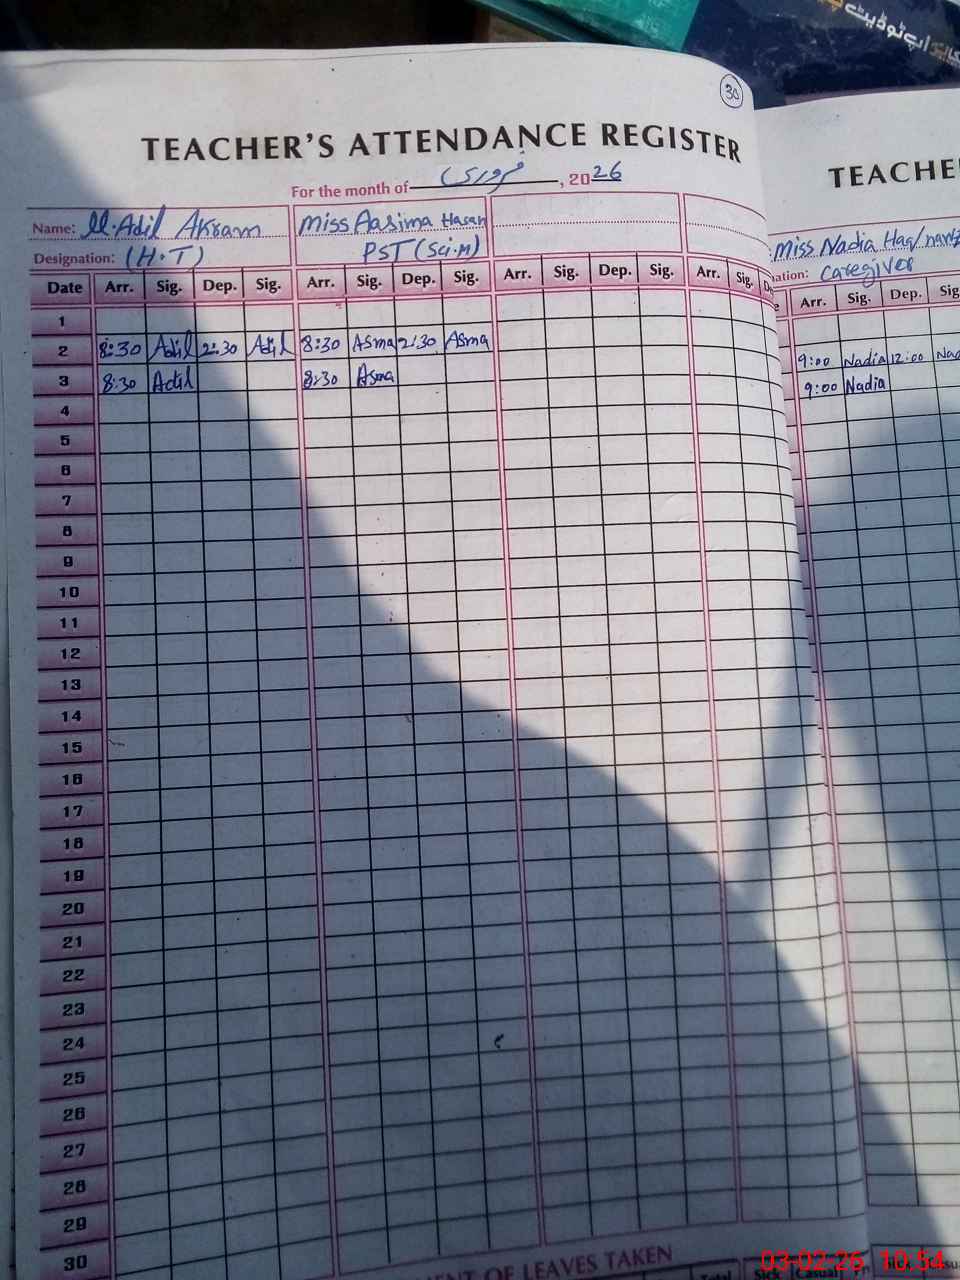 اپ ٹو ڈیٹ
30
TEACHER'S ATTENDANCE REGISTER
For the month of فروری, 2026
Name: M.Adil Akram Miss Aasima Hasan
Designation: (H.T) PST (Sci.M)
Date Arr. Sig. Dep. Sig. Arr. Sig. Dep. Sig. Arr. Sig. Dep. Sig. Arr. Sig.
1
2 8:30 Adil 2:30 Adil 8:30 Asma 2:30 Asma
3 8:30 Adil 8:30 Asma
4
5
6
7
8
9
10
11
12
13
14
15
16
17
18
19
20
21
22
23
24
25
26
27
28
29
30
OF LEAVES TAKEN
TEACHE
Miss Nadia Haq
Caregiver
Arr. Sig. Dep. Sig
9:00 Nadia 12:00 Nad
9:00 Nadia
03-02-26 10:54